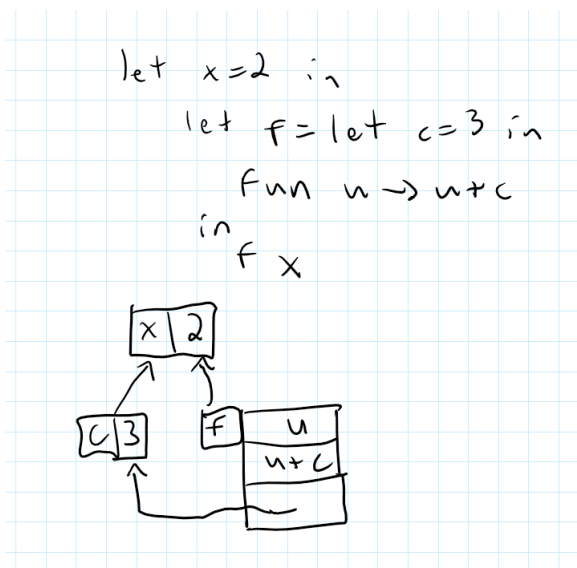 let x=2 in
let f=let c=3 in
fun u → u+c
in
f x
x 2
c 3
f u
u+c